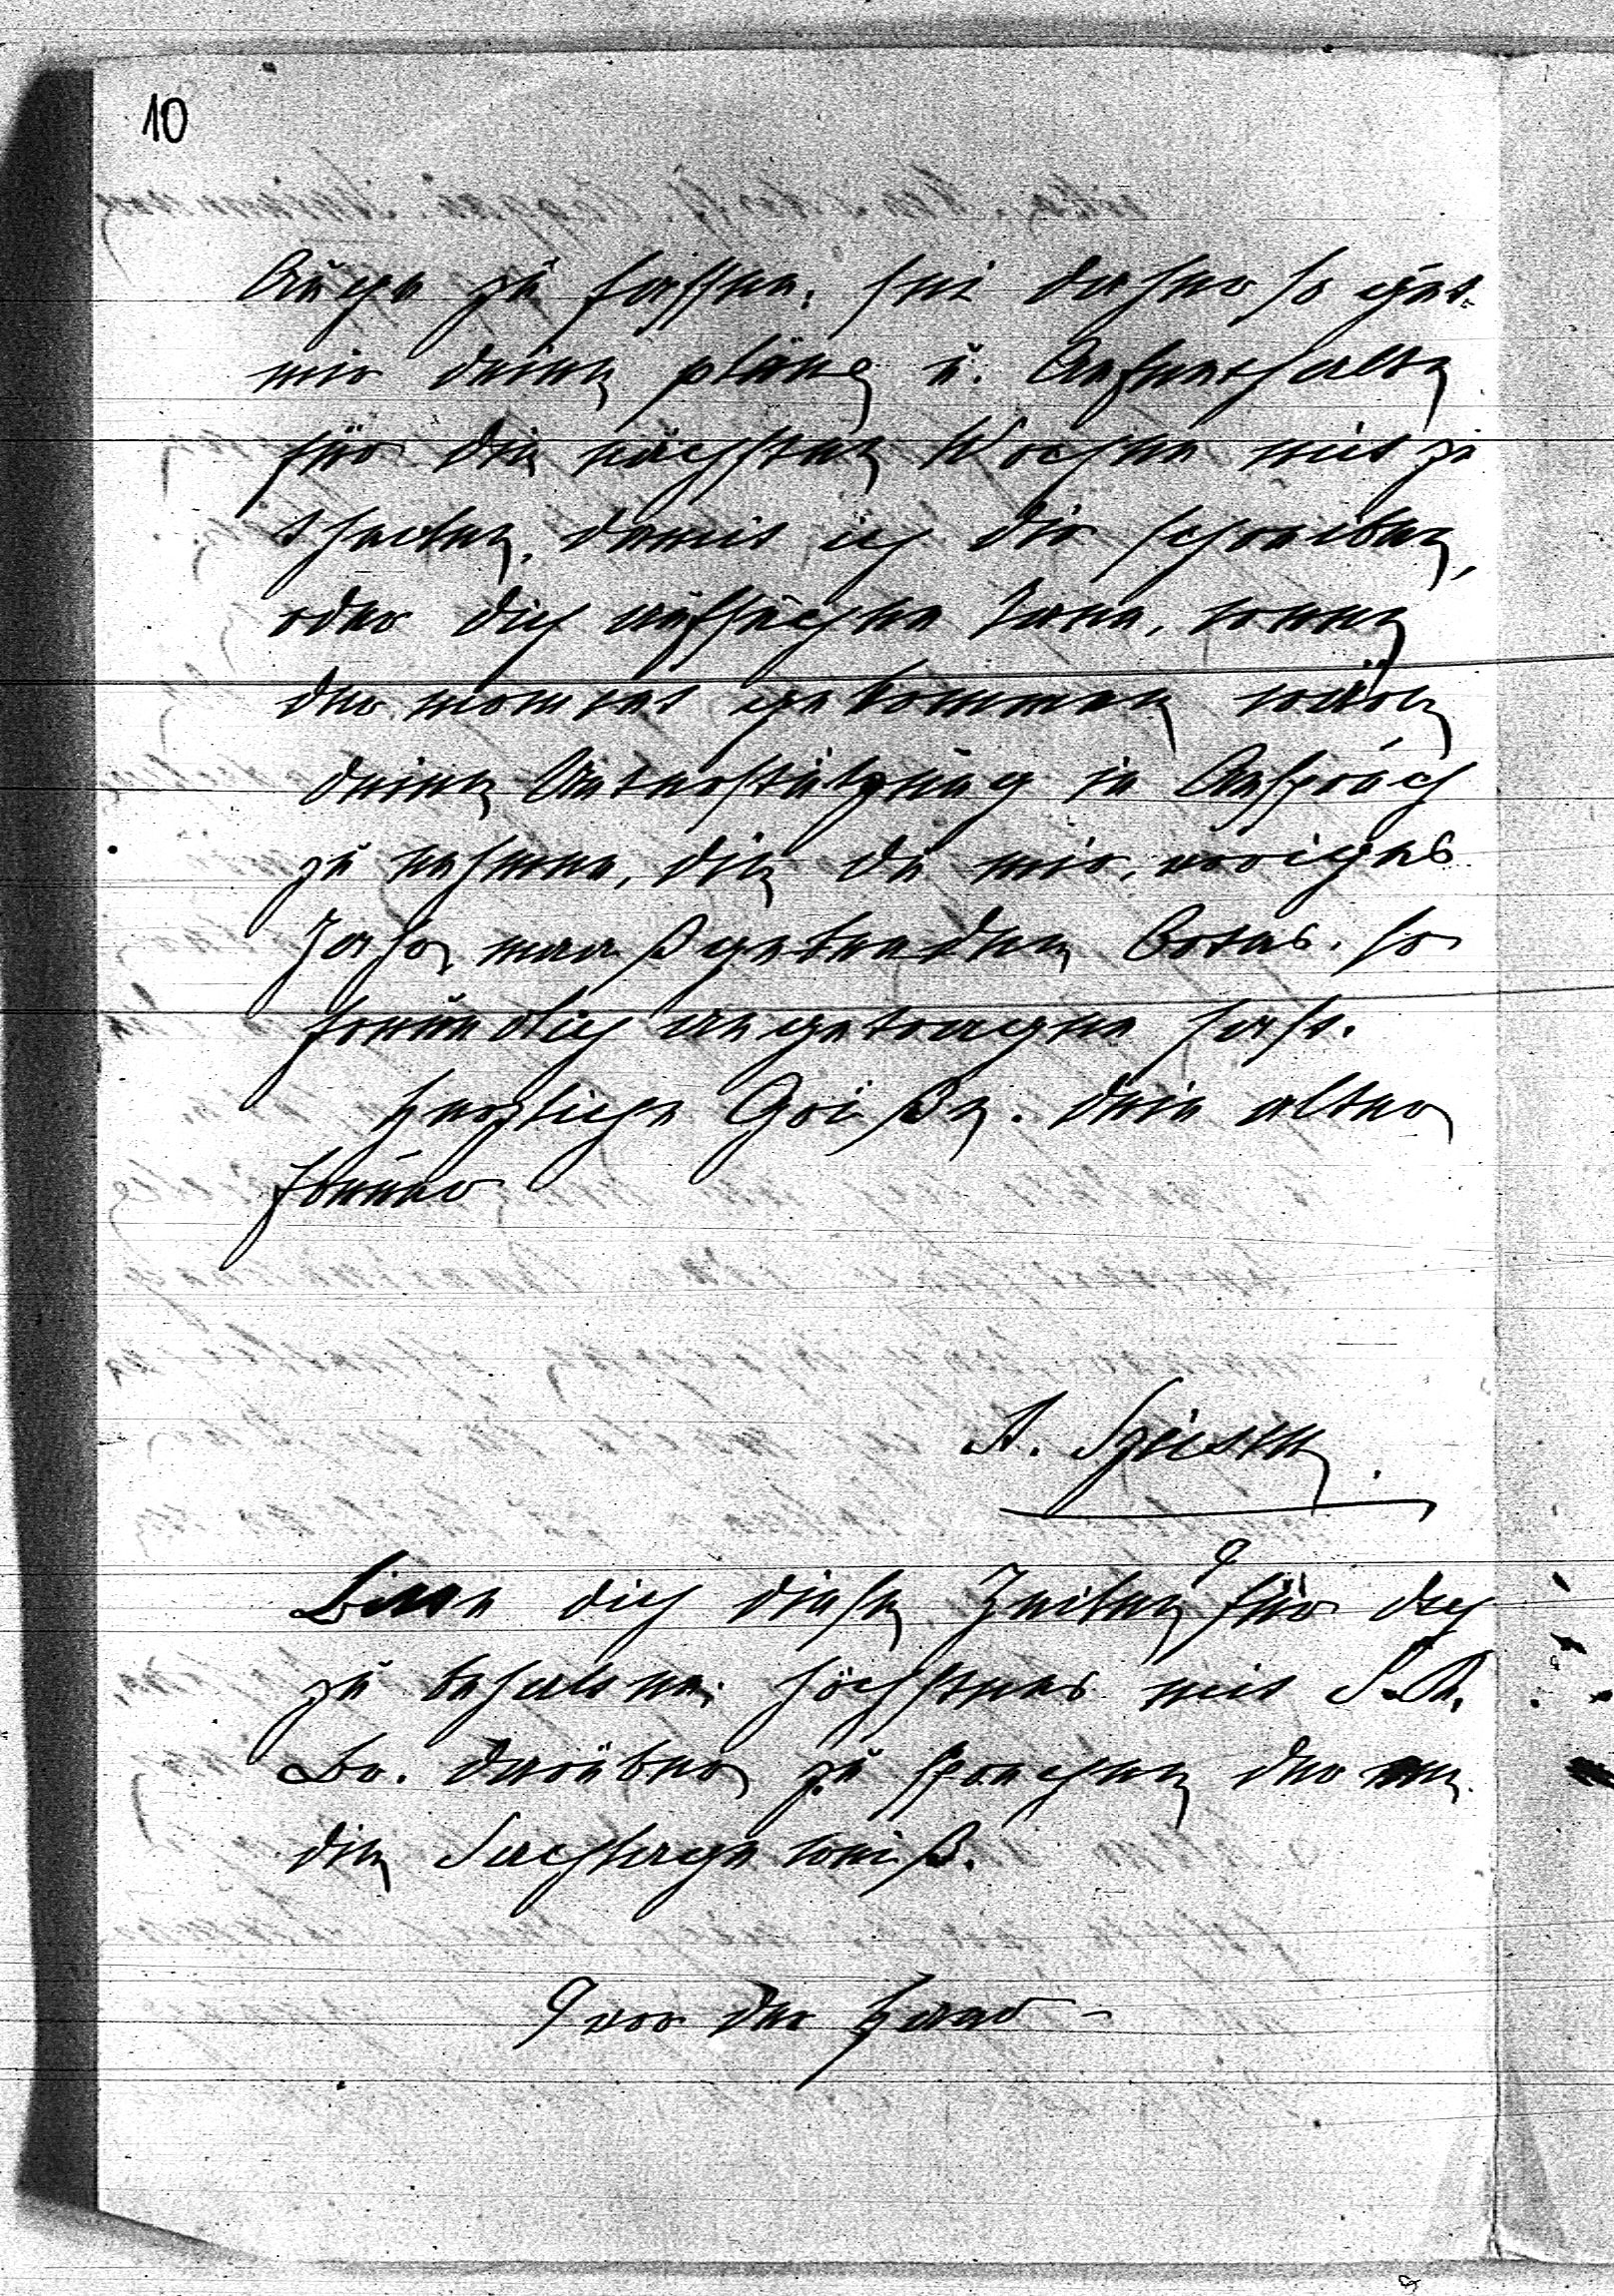 10
Auge zu fassen. sei daher so gut
mir deine pläne u. Aufenthalte
für die nächsten Wochen mit zu
theilen, damit ich dir schreiben,
oder dich aufsuchen kann, wenn
der moment gekommen wäre
deine Unterstützung in Anspruch
zu nehmen, die du mir voriges
Jahr maaßgebenden Ortes so
freundlich angetragen hast.
herzliche Grüße. dein alter
Freund
A. Spiess
Bitte dich diese Zeilen für dich
zu behalten. höchstens mit S.A.
Br. darüber zu sprechen der
die Sachlage weiß.
vor der hand